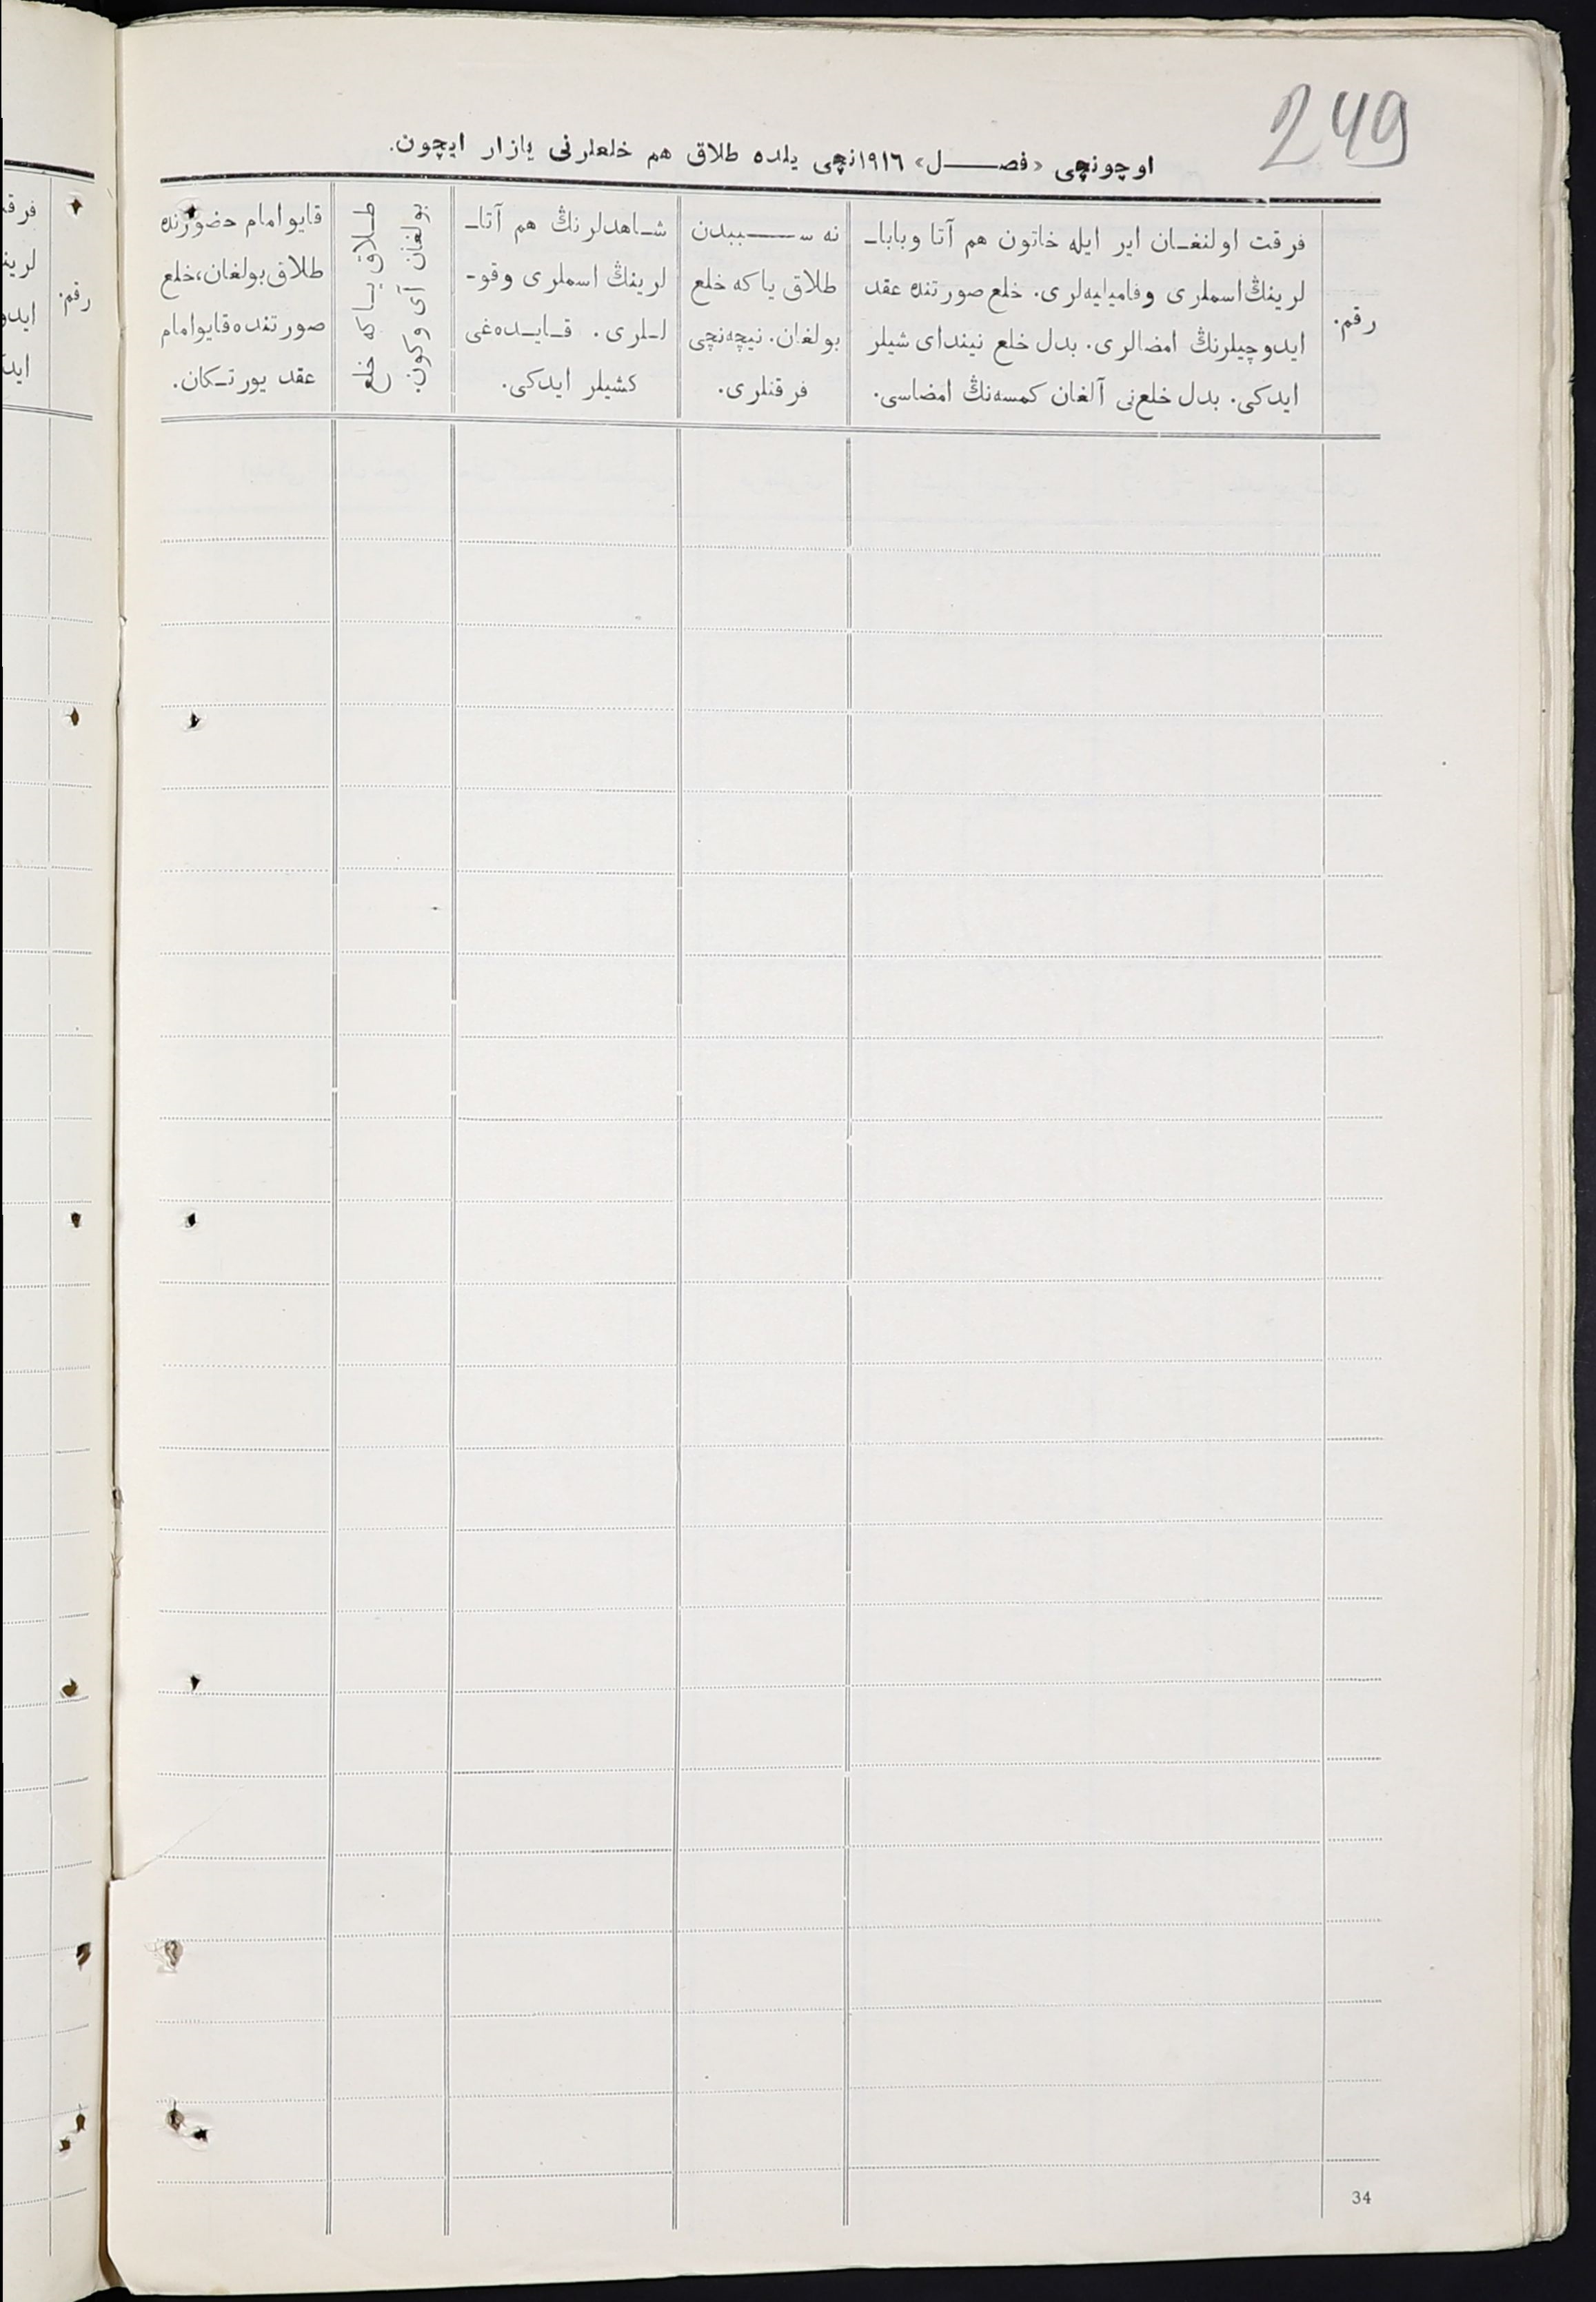 249
اوچونچی «فصـــل» ۱۹۱۶نچی یلده طلاق هم خلعلرنی یازار ایچون.
رقم.
فرقت اولنغـان ایر ایله خاتون هم آتا وباباـ
لرینڭ اسملری وفامیلیه‌لری. خلع صورتنده عقد
ایدوچیلرنڭ امضالری. بدل خلع نیندای شیلر
ایدکی. بدل خلع‌نی آلغان کمسه‌نڭ امضاسی.
نه ســـببدن
طلاق یا که خلع
بولغان. نیچه‌نچی
فرقتلری.
شـاهدلرنڭ هم آتاـ
لرینڭ اسملری وقوـ
لـلری. قـایـده‌غی
کشیلر ایدکی.
طـلاق یـا که خلع
بولغان آی وکون.
قایو امام حضورنده
طلاق بولغان، خلع
صورتنده قایو امام
عقد یورتـکان.
رقم.
34